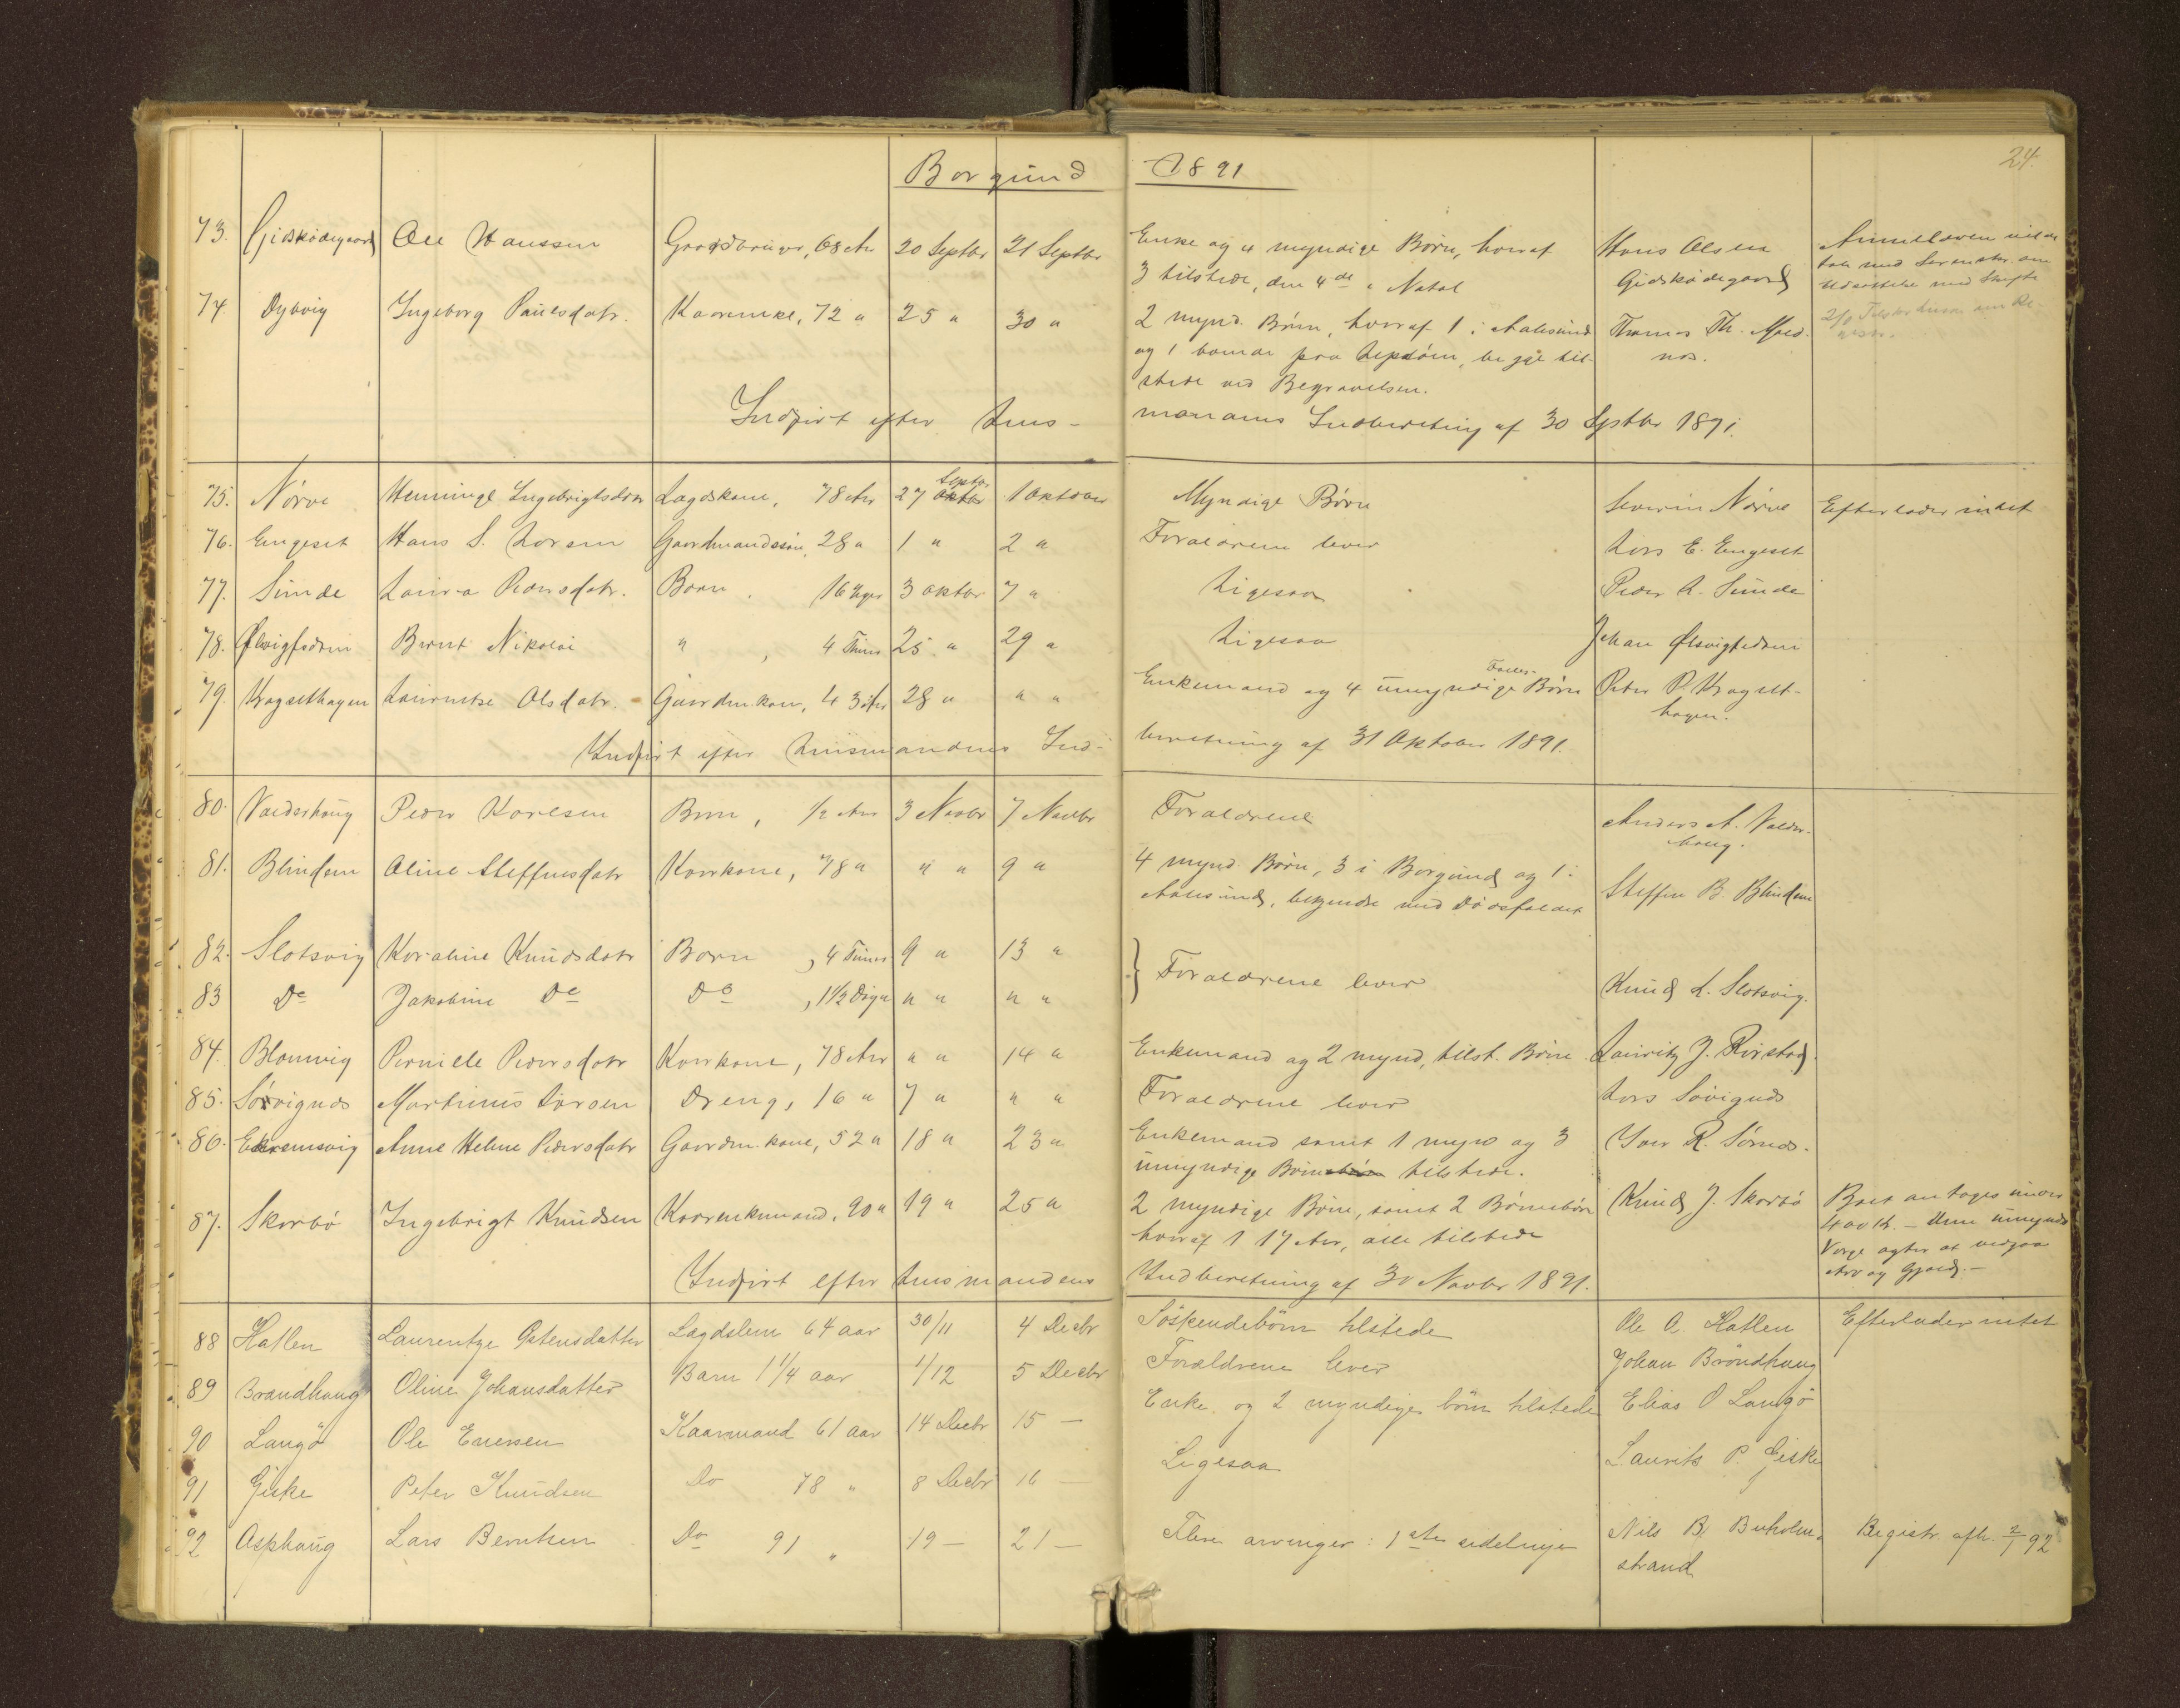 Borgund 1891
24.
73. Gidskødegaard Ole Hanssen Gaardbruger, 68 Ar 20 Septbr 21 Septbr Enke og 4 myndige Børn, hvoraf Hans Olsen Anmelderen vilde
3 tilstede, den 4de i Natal Gidskødegaard tale med Sorenskr. om
Udsættelse med Skifte
74. Dybvig Ingeborg Paulsdatr. Kaarenke, 72 " 25 " 30 " 2 mynd. Børn, hvoraf 1 i Aalesund Thomas Th. Mold-
og 1 borende paa Lepsøen, begge til- nes.
stede ved Begravelsen.
Indført efter Lens- mandens Indberetning af 30 Septbr 1891.
75. Nørve Henninge Ingebrigtsdatr Lægdskone, 78 Ar 27 Septbr 1 Oktober Myndige Børn Severin Nørve Efterlader intet
76. Engeset Hans L. Larsen Gaardmandssøn, 28 " 1 " 2 " Forældrene lever Lars E. Engeset
77. Sunde Laura Pedersdatr. Barn, 16 Uger 3 Oktbr 7 " Ligesaa Peder L. Sunde
78. Ølsvigfedren Bernt Nikolai " , 4 Timer 25 " 29 " Ligesaa Johan Ølsvigfedren
79. Kragsethagen Laurentse Olsdatr. Gaardm.kone, 43 Ar 28 " " " Enkemand og 4 umyndige Fælles-Børn Peter P. Kragset-
hagen.
Indført efter Lensmandens Ind- beretning af 31 Oktober 1891.
80. Valderhaug Peder Karlsen Barn, 1/2 Ar 3 Novbr 7 Novbr Forældrene Anders A. Valder-
haug.
81. Blindem Oline Steffensdatr Kaarkone, 78 " " " 9 " 4 mynd. Børn, 3 i Borgund og 1 i
Aalesund, bekjendte med Dødsfaldet Steffen B. Blindem
82. Slotsvig Karoline Knudsdatr Barn, 4 Timer 9 " 13 " } Forældrene lever
83 Do Jakobine Do Do, 1 1/2 Døgn " " " " Knud L. Slotsvig.
84. Blomvig Pernille Pedersdatr Kaarkone, 78 Ar " " 14 " Enkemand og 2 mynd, tilst. Børn Lauritz J. Rirstad
85. Søvignes Martinus Larsen Dreng, 16 " 7 " " " Forældrene lever Lars Søvignes
86. Ekremsvig Anne Helene Pedersdatr Gaardm. kone, 52 " 18 " 23 " Enkemand samt 1 mynd og 3 Iver R. Sørnes.
umyndige Børn tilstede.
87. Skorbø Ingebrigt Knudsen Kaarenkemand, 90 " 19 " 25 " 2 myndige Børn, samt 2 Børnebørn Knud J. Skorbø Boet antages under
hvoraf 1 17 Ar, alle tilstede 400 K. – Den umynds
Verge agter at vedgaa
Arv og Gjæld. –
Indført efter Lensmandens Indberetning af 30 Novbr 1891.
88 Hatlen Laurentze Ostensdatter Lægdslem 64 aar 30/11 4 Decbr Söskendebörn tilstede Ole O. Hatlen Efterlader intet
89 Brandhaug Oline Johansdatter Barn 1 1/4 aar 1/12 5 Decbr Forældrene lever Johan Bröndhaug
90 Langö Ole Enersen Kaarmand 61 aar 14 Decbr 15 – Enke og 2 myndige börn tilstede Elias O Langö
91 Giske Peter Knudsen Do 78 " 8 Decbr 16 – Ligesaa Laurits P. Giske
92 Asphaug Lars Berntsen Do 91 " 19 – 21 – Flere arvinger i 1ste sidelinje Nils B. Buholm- Registr. afh. 2/1 92
strand